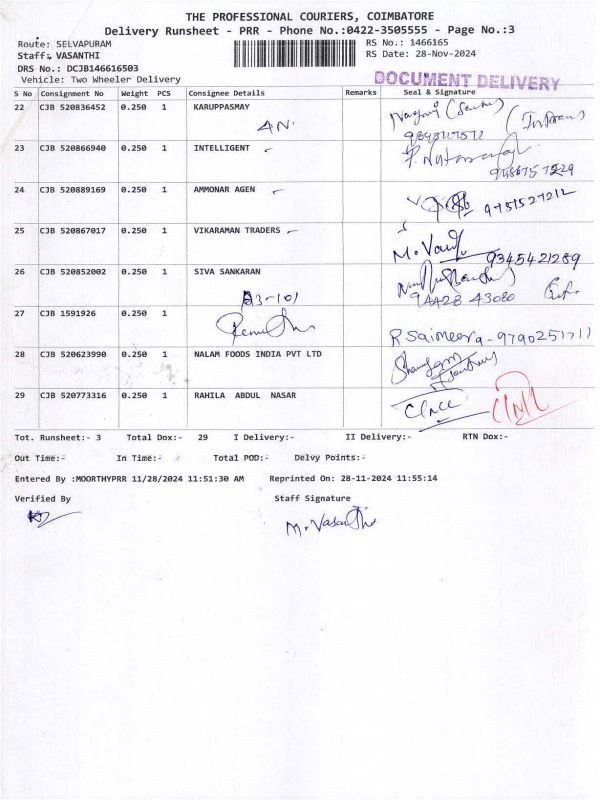 THE PROFESSIONAL COURIERS, COIMBATORE
Delivery Runsheet - PRR - Phone No.:0422-3505555 - Page No.:3
Route: SELVAPURAM RS No.: 1466165
Staff: VASANTHI RS Date: 28-Nov-2024
DRS No.: DCJB146616503
Vehicle: Two Wheeler Delivery DOCUMENT DELIVERY
S No Consignment No Weight PCS Consignee Details Remarks Seal & Signature
22 CJB 520836452 0.250 1 KARUPPASMAY
AN.
23 CJB 520866940 0.250 1 INTELLIGENT
24 CJB 520889169 0.250 1 AMMONAR AGEN 9751527212
25 CJB 520867017 0.250 1 VIKARAMAN TRADERS
9345421289
26 CJB 520852002 0.250 1 SIVA SANKARAN
A3-101 94428 43080
27 CJB 1591926 0.250 1
R Saimeera - 9790251711
28 CJB 520623990 0.250 1 NALAM FOODS INDIA PVT LTD
29 CJB 520773316 0.250 1 RAHILA ABDUL NASAR
Tot. Runsheet:- 3 Total Dox:- 29 I Delivery:- II Delivery:- RTN Dox:-
Out Time:- In Time:- Total POD:- Delvy Points:-
Entered By :MOORTHYPRR 11/28/2024 11:51:30 AM Reprinted On: 28-11-2024 11:55:14
Verified By Staff Signature
M. Vasanthi